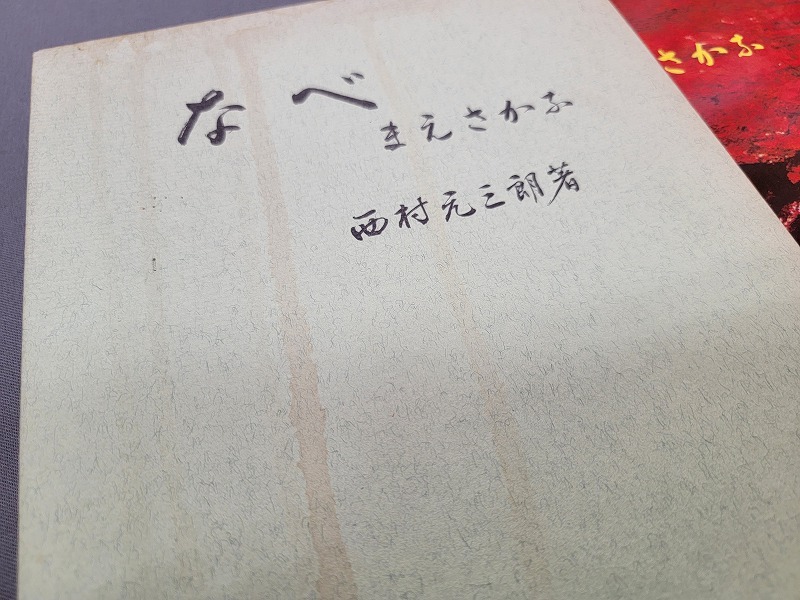 なべ
まえさかな
西村元三朗著
さかな